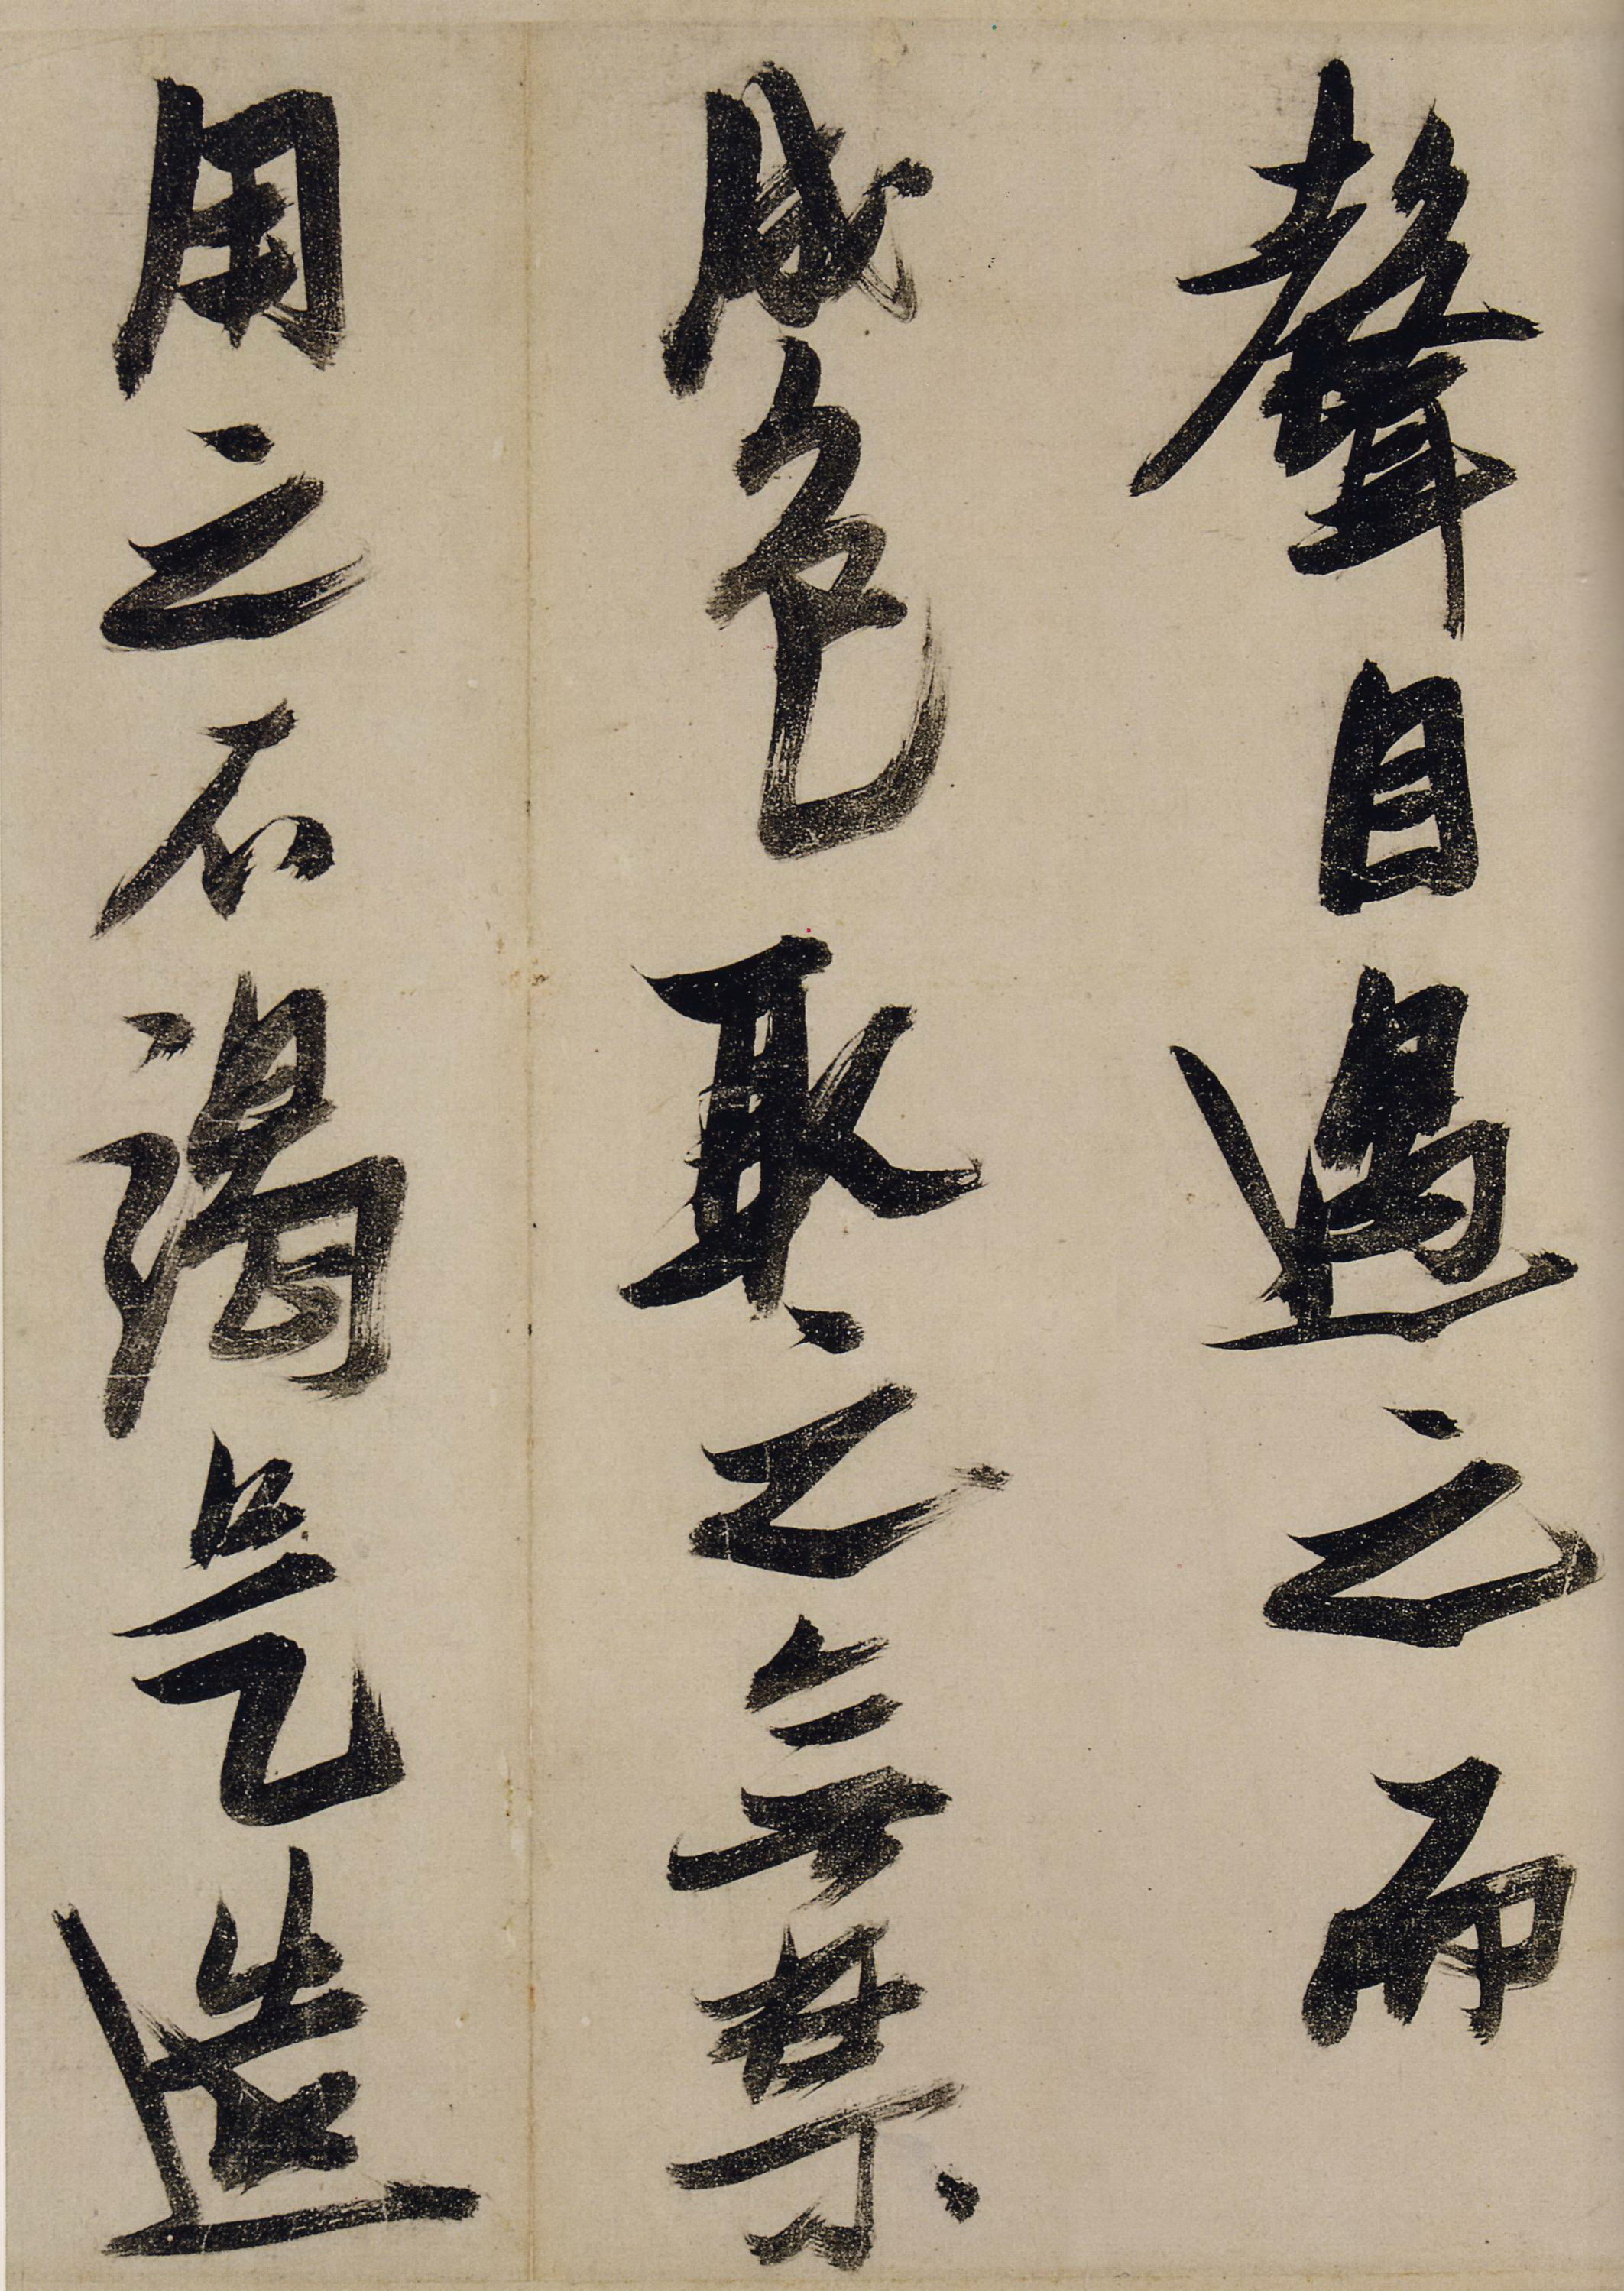 聲目遇之而
成色取之無禁
用之不竭是造